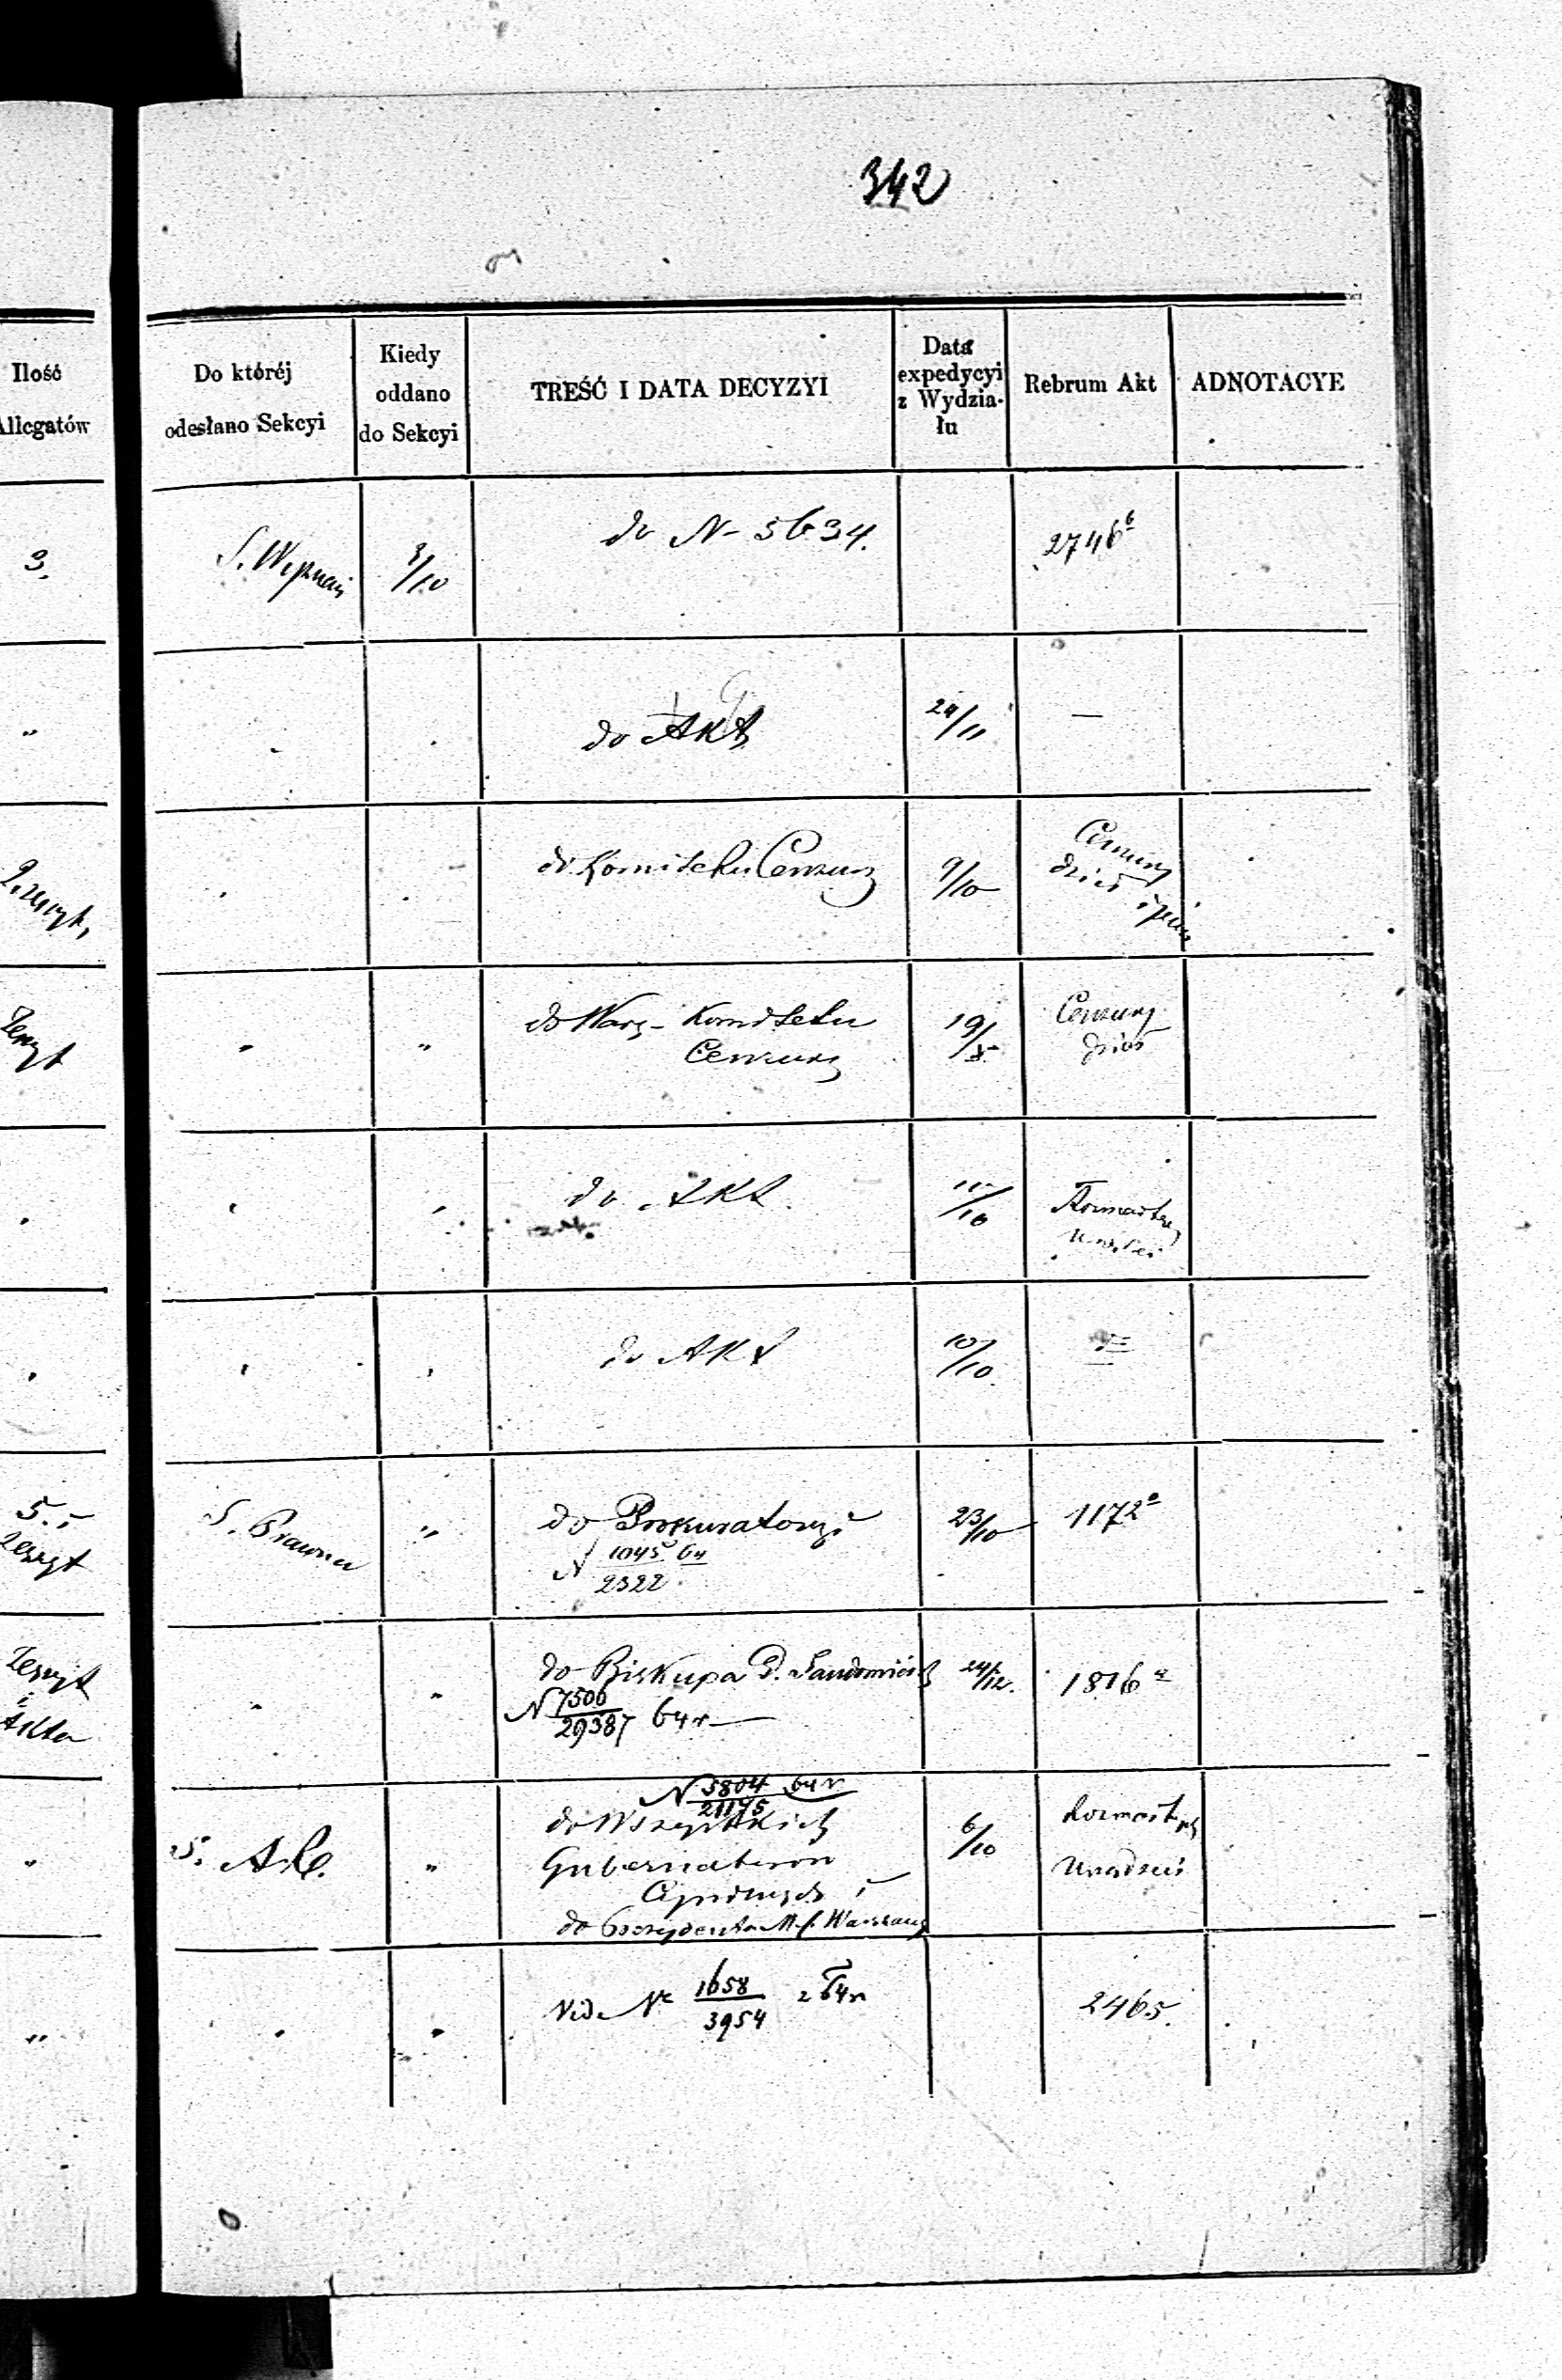 342
Ilość
Allegatów
Do któréj
odesłano Sekcyi
Kiedy
oddano
do Sekcyi
TREŚĆ I DATA DECYZYI
Data
expedycyi
z Wydzia-
łu
Rebrum Akt
ADNOTACYE
3.
S. Wyznań
3/10
do N- 5634.
2746 b
"
do Akt
24/11
—
2 zeszyt,
do Komitetu Cenzury
9/10
Cenzury
dzieł
Zeszyt
"
"
do Warsz- Komitetu
Cenzury
19/X
Cenzury
dzieł
do Akt.
11/10
Rozmaitych
do Akt
10/10
5. i
Zeszyt
S. Prawna
"
do Prokuratoryi
N 1045/2322 64
23/10
1172 a
Zeszyt
i
Akta
"
"
do Biskupa D. Sandomirsk
N 7506/29387 64 r
24/12.
1816 a
"
S. A. C.
"
N 5804/21175 64 r
do Wszystkich
Gubernatorów
Cywilnych i
do Prezydenta M. Warszawy
6/10
Rozmaitych
Urządzeń
"
"
"
Vide Nr 1658/3954 z 64 r
2465.